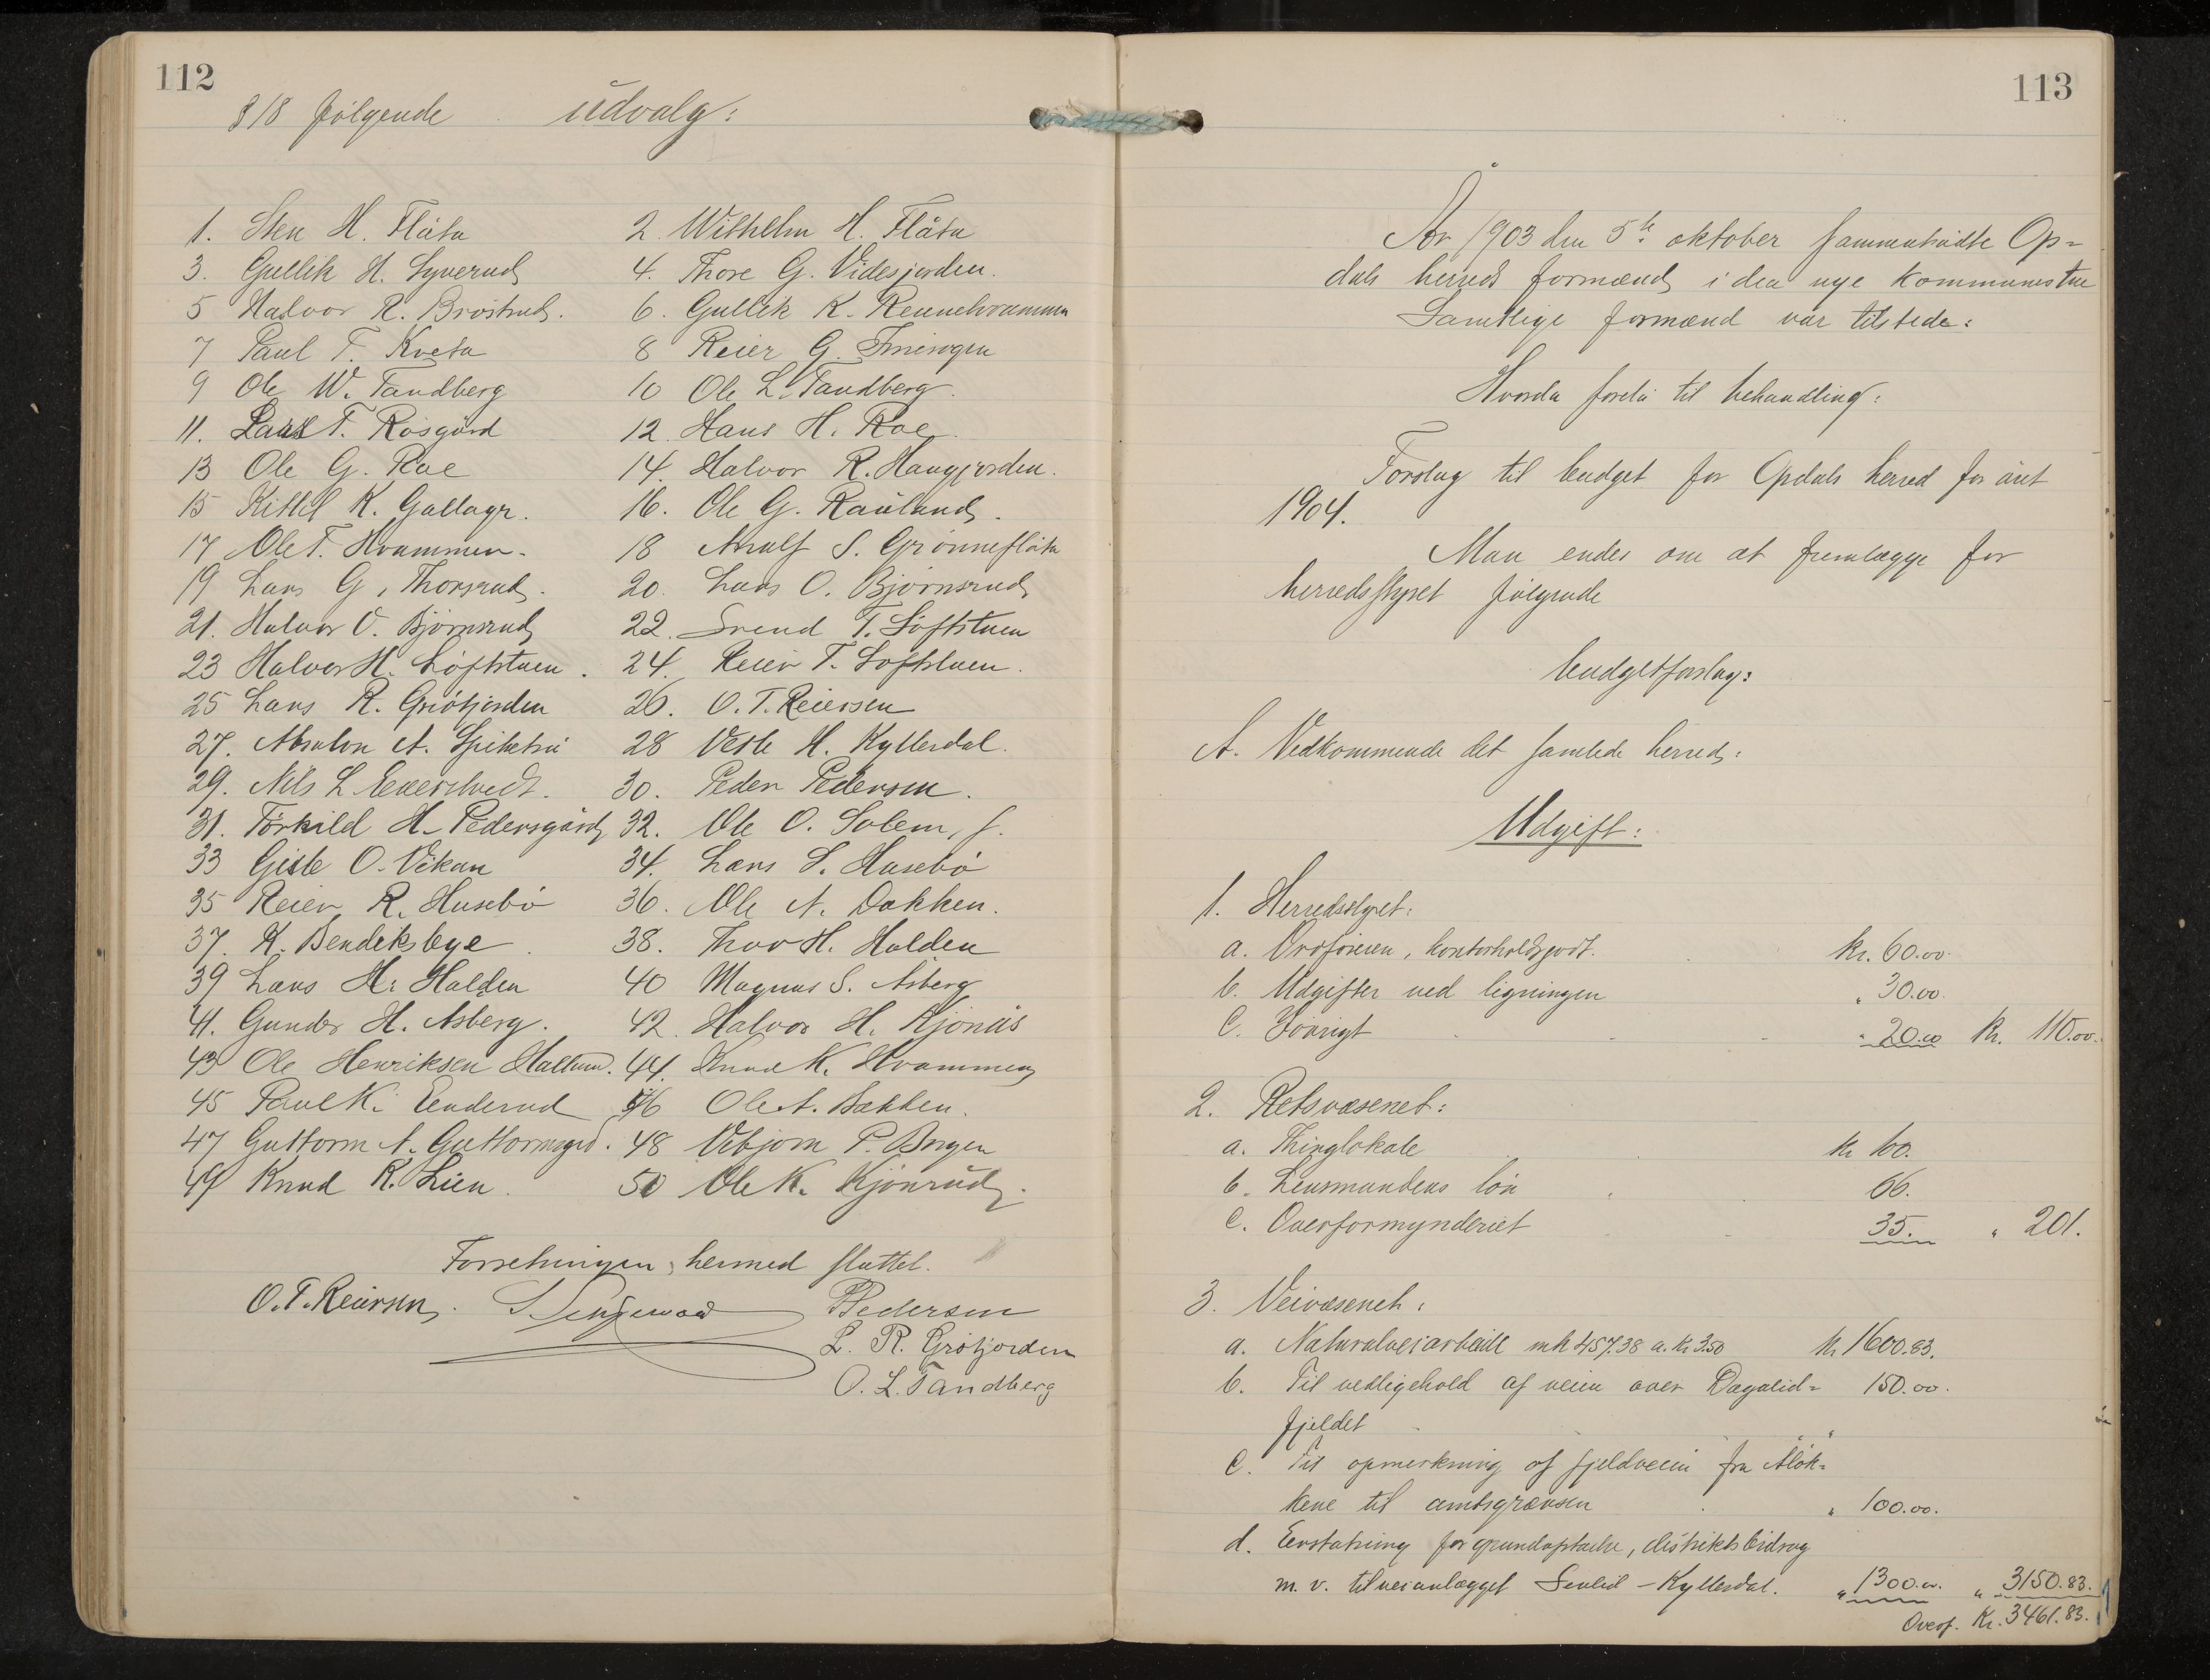 112
§18 følgende udvalg:
1. Sten H. Flåta 2. Wilhelm H. Flåta
3. Gullik H. Syverud 4. Thore G. Videsjorden.
5 Halvor R. Brøstrud. 6. Gullik K. Rennehvammen
7 Paul T. Kveta 8 Reier G.
9 Ole W. Tandberg 10 Ole L. Tandberg.
11. Lars T. Rosgård 12. Hans H. Roe.
13 Ole G. Roe 14. Halvor R. Haugjorden.
15 Kittil K. Gallagr. 16. Ole G. Rauland.
17 Ole T. Hvammen. 18 S. Grønneflåta
19 Lars G. Thorsrud. 20. Lars O. Bjørnsrud
21. Halvor O. Bjørnsrud 22. Svend T. Loftstuen
23 Halvor H. Løftstuen. 24. Reier T. Loftstuen.
25 Lars R. Grøtjorden 26. O. T. Reiersen
27. Absalon A. 28 Vetle H. Kyllesdal.
29. Nils L. 30. Peder Pedersen.
31. Torkild H. Pedersgård 32. Ole O. Solem, f.
33 Gisle O. Vikan 34. Lars S. Husebø
35 Reier R. Husebø 36. Ole A. Dokken.
37. K. Bendiksbye. 38. Thor H. Halden
39 Lars H. Halden 40 Magnus S. Åsberg
41. Gunder H. Åsberg. 42. Halvor H. Kjønås
43 Ole Henriksen Hallum. 44. Knud K. Hvammen
45 Paul K. Enderud 46 Ole A. Bakken.
47 Guttorm A. Guttormsgrd. 48 Vebjørn P. Borgen
49 Knud R. Lien. 50 Ole K. Kjønrud.
Forretningen hermed sluttet.
O. T. Reiersen. PPedersen
L. R. Grøtjorden
O. L. Tandberg
113
År 1903 den 5te oktober sammentrådte Op=
dals herreds formænd i den nye kommunestue
Samtlige formænd var tilstede:
Hvorda forelå til behandling:
Forslag til budget for Opdals herred for året
1904.
Man endes om at fremlægge for
herredsstyret følgende
budgetforslag:
A. Vedkommende det samlede herred:
Udgift:
1. Herredsstyret:
a. Ordføreren, kontorholdsgodt. Kr. 60.00.
b. Udgifter ved ligningen " 30.00.
c. Forøvrigt " 20.00 Kr. 110.00.
2. Retsvæsenet:
a. Thinglokale Kr 100.
b. Lensmandens løn 66.
c. Overformynderiet 35. " 201.
3. Veivæsenet:
a. Naturalveiarbeide mk 457.38 a. Kr 3.50 Kr 1600.83.
b. Til vedligehold af veien over Dagalid= 150.00.
fjeldet "
c. Til opmerkning af fjeldveien fra Åløk=
kene til amtsgrænsen " 100.00.
d. Erstatning for grundafståelse, distriktsbidrag
m. v. til veianlægget Senlid – Kyllesdal. " 1300.00. " 3150.83.
Overf. Kr. 3461.83.